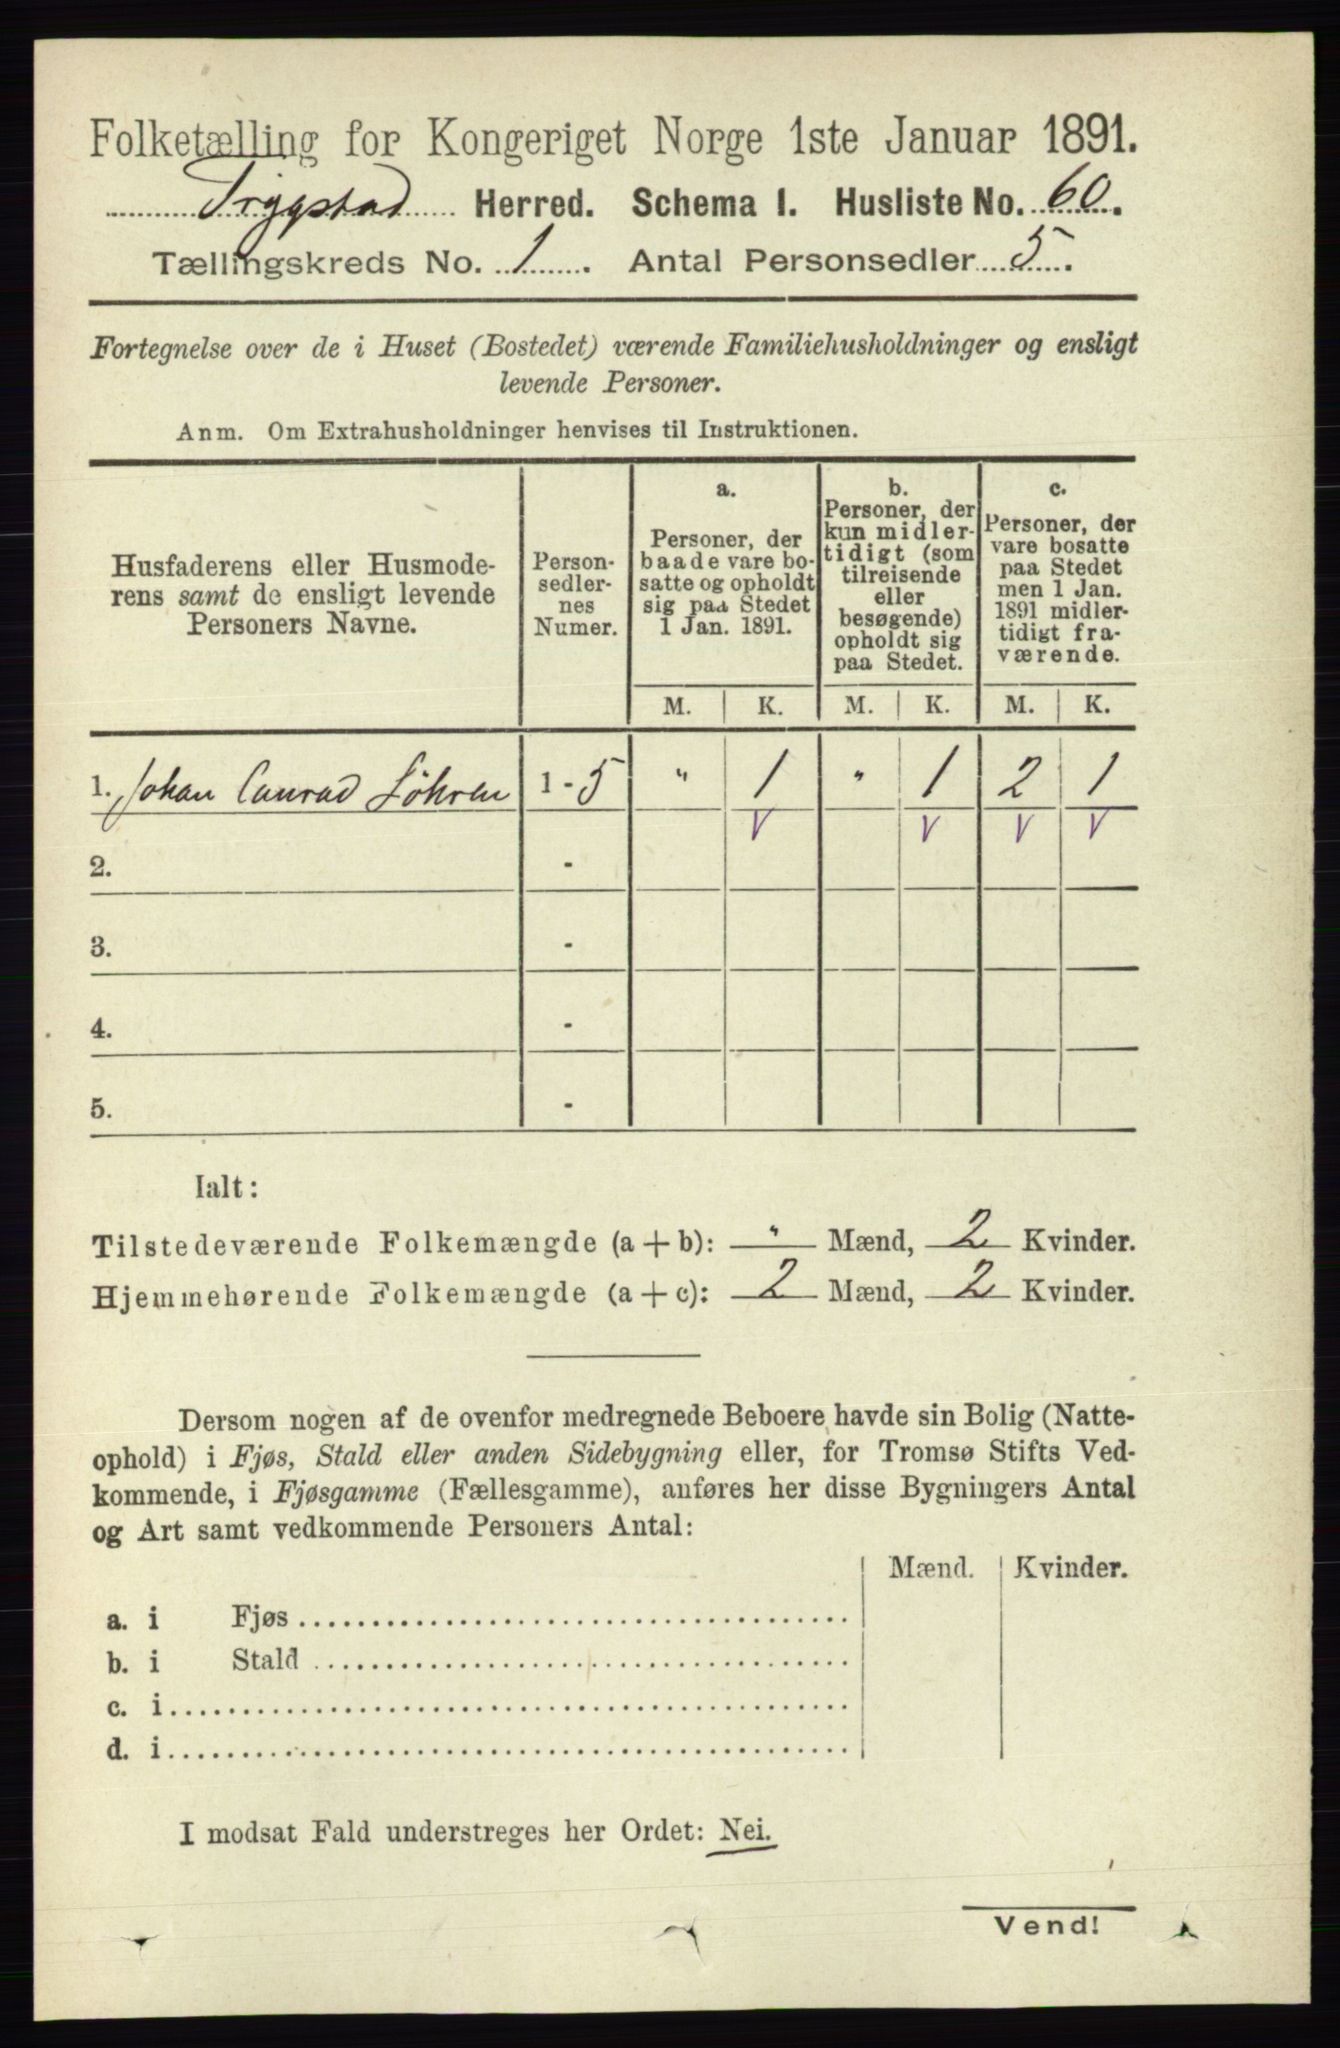 Folketælling for Kongeriget Norge 1ste Januar 1891.
Trygstad Herred. Schema I. Husliste No. 60.
Tællingskreds No. 1. Antal Personsedler 5.
Fortegnelse over de i Huset (Bostedet) værende Familiehusholdninger og ensligt
levende Personer.
Anm. Om Extrahusholdninger henvises til Instruktionen.
Husfaderens eller Husmode-
rens samt de ensligt levende
Personers Navne.
Person-
sedler-
nes
Numer.
a.
Personer, der
baade vare bo-
satte og opholdt
sig paa Stedet
1 Jan. 1891.
b.
Personer, der
kun midler-
tidigt (som
tilreisende
eller
besøgende)
opholdt sig
paa Stedet.
c.
Personer, der
vare bosatte
paa Stedet
men 1 Jan.
1891 midler-
tidigt fra-
værende.
M. K. M. K. M. K.
1. Johan Conrad Löhren 1 - 5 " 1 " 1 2 1
V V V V
2. -
3. -
4. -
5. -
Ialt:
Tilstedeværende Folkemængde (a + b): " Mænd, 2 Kvinder.
Hjemmehørende Folkemængde (a + c): 2 Mænd, 2 Kvinder.
Dersom nogen af de ovenfor medregnede Beboere havde sin Bolig (Natte-
ophold) i Fjøs, Stald eller anden Sidebygning eller, for Tromsø Stifts Ved-
kommende, i Fjøsgamme (Fællesgamme), anføres her disse Bygningers Antal
og Art samt vedkommende Personers Antal:
Mænd. Kvinder.
a. i Fjøs
b. i Stald
c. i
d. i
I modsat Fald understreges her Ordet: Nei.
Vend!